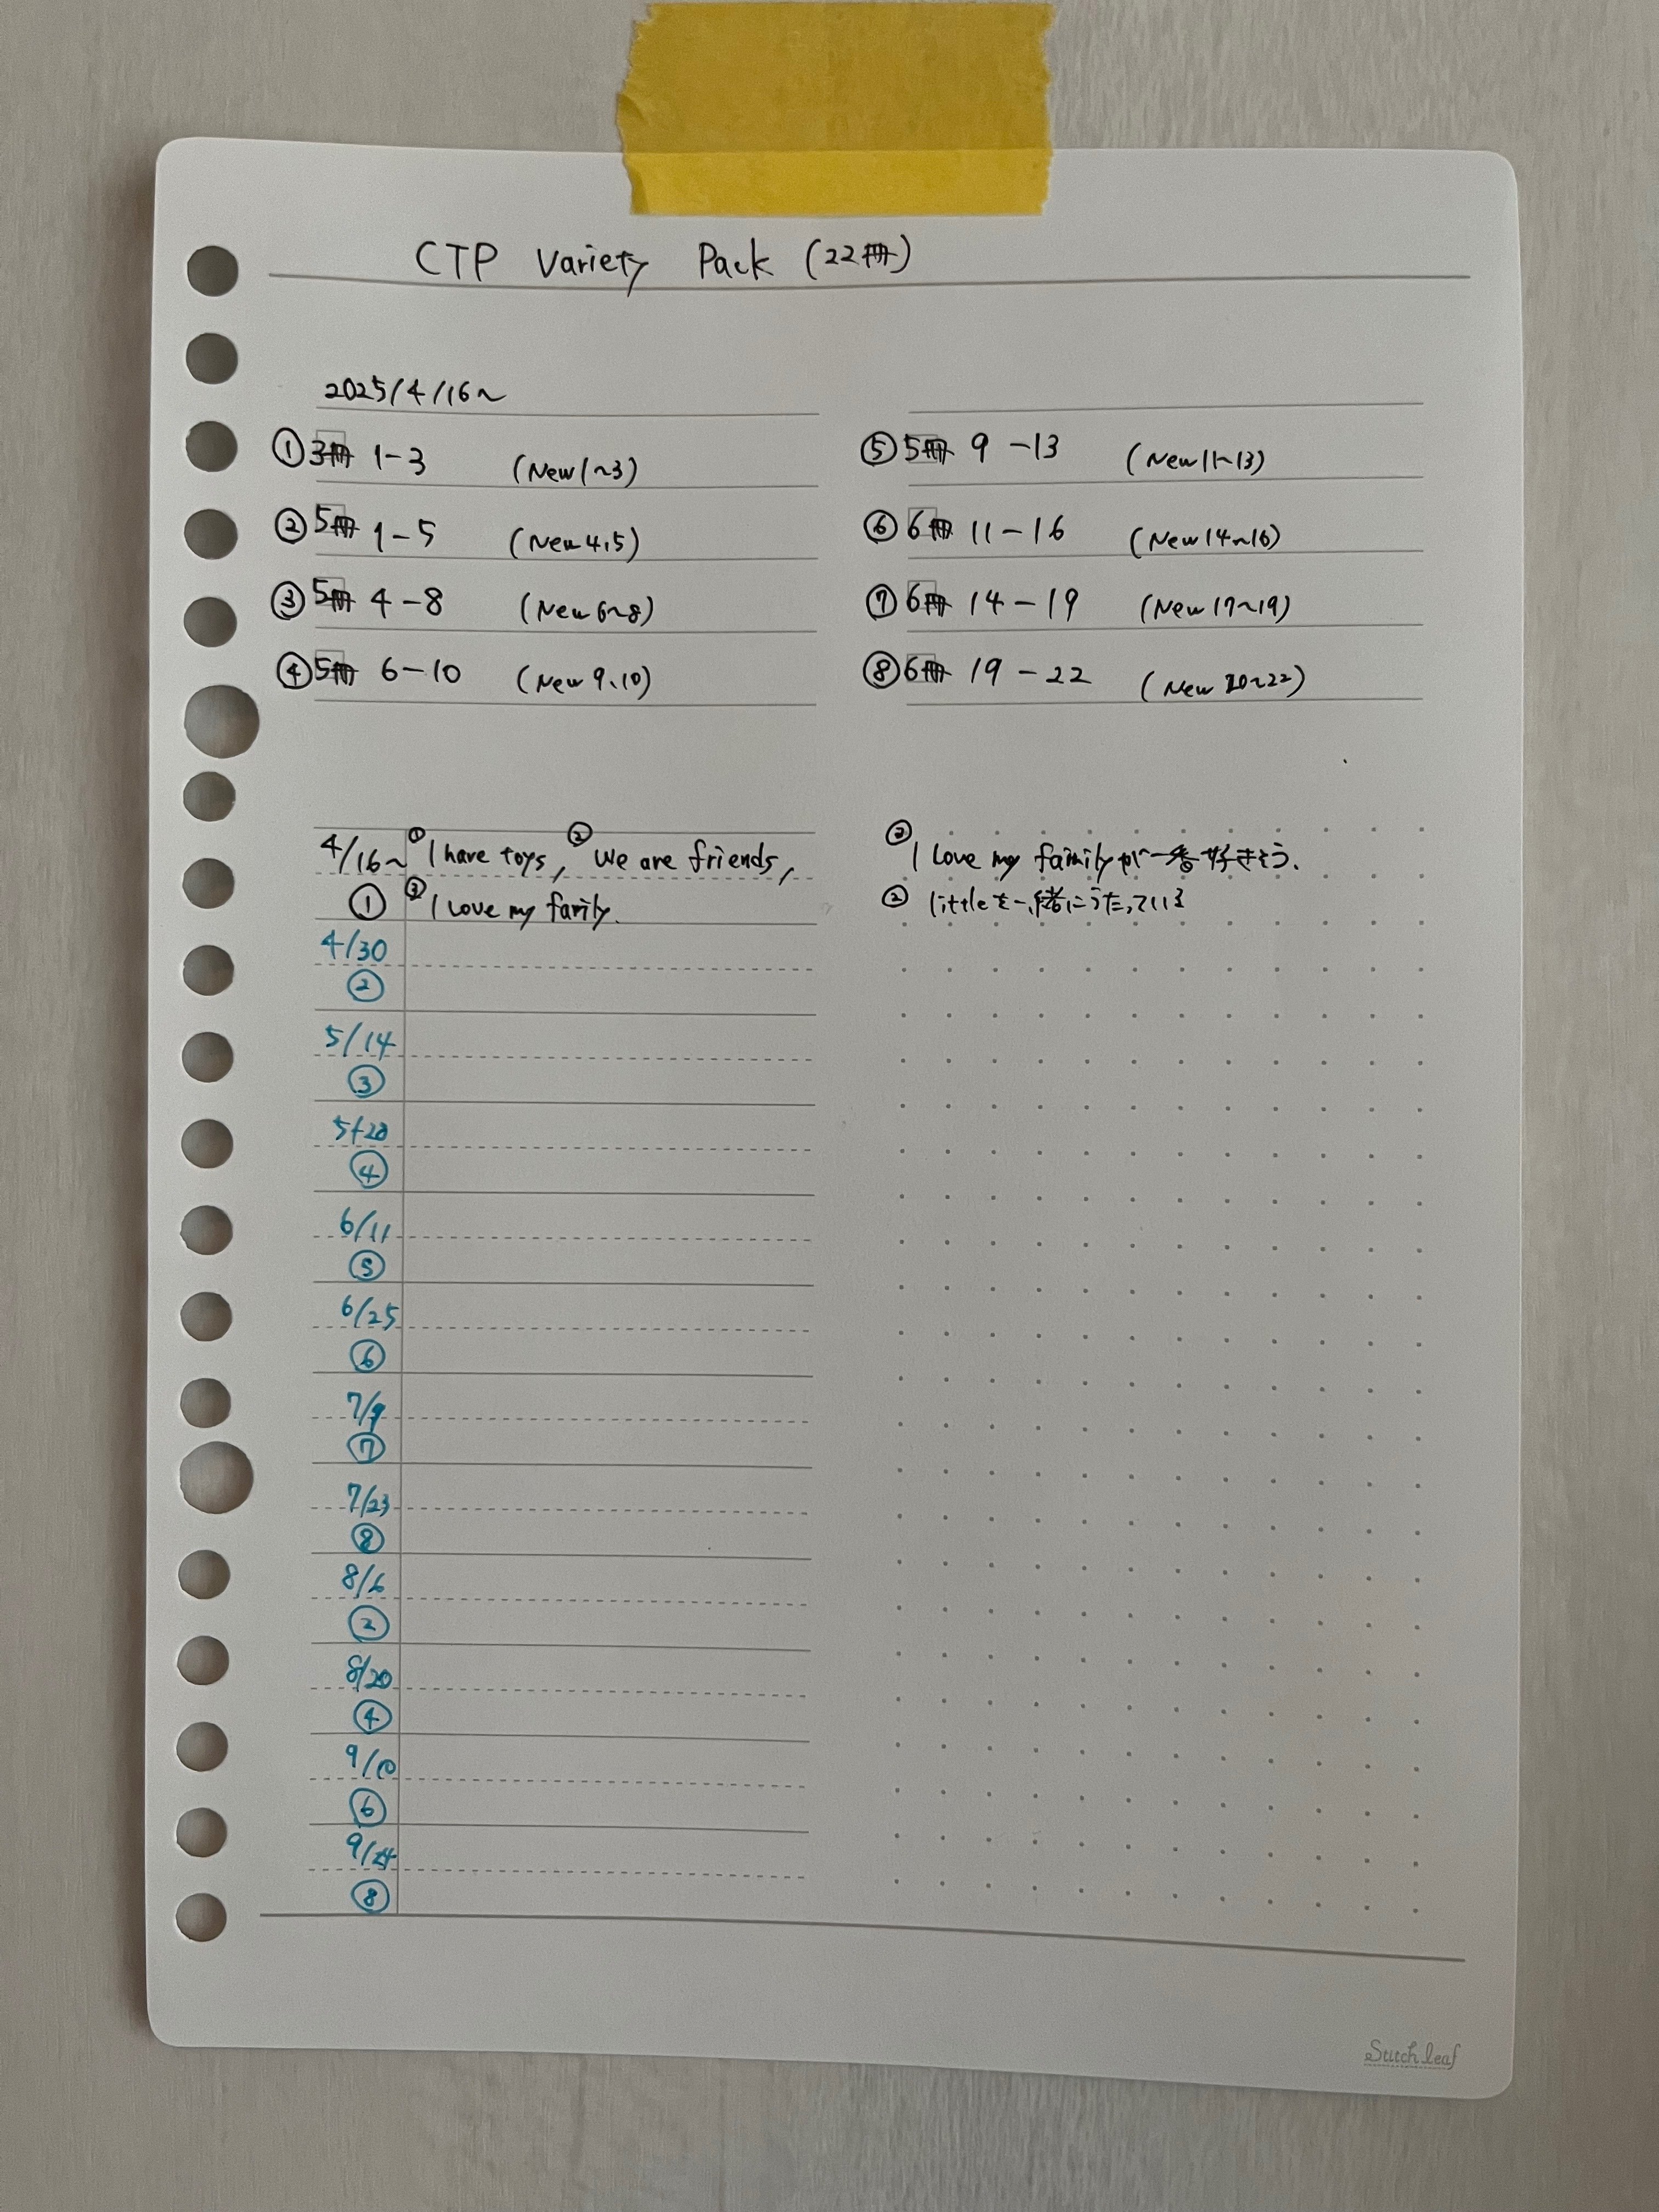 CTP Variety Pack (22冊)
2025/4/16〜
① 3冊 1-3 (New 1〜3)
② 5冊 1-5 (New 4,5)
③ 5冊 4-8 (New 6〜8)
④ 5冊 6-10 (New 9、10)
⑤ 5冊 9-13 (New 11〜13)
⑥ 6冊 11-16 (New 14〜16)
⑦ 6冊 14-19 (New 17〜19)
⑧ 6冊 19-22 (New 20〜22)
4/16〜 ① I have toys, ② We are friends,
① ③ I love my family.
② I love my familyが一番好きそう.
② littleを一緒にうたっている
4/30
②
5/14
③
5/28
④
6/11
⑤
6/25
⑥
7/9
⑦
7/23
⑧
8/6
②
8/20
④
9/10
⑥
9/24
⑧
Stitch leaf